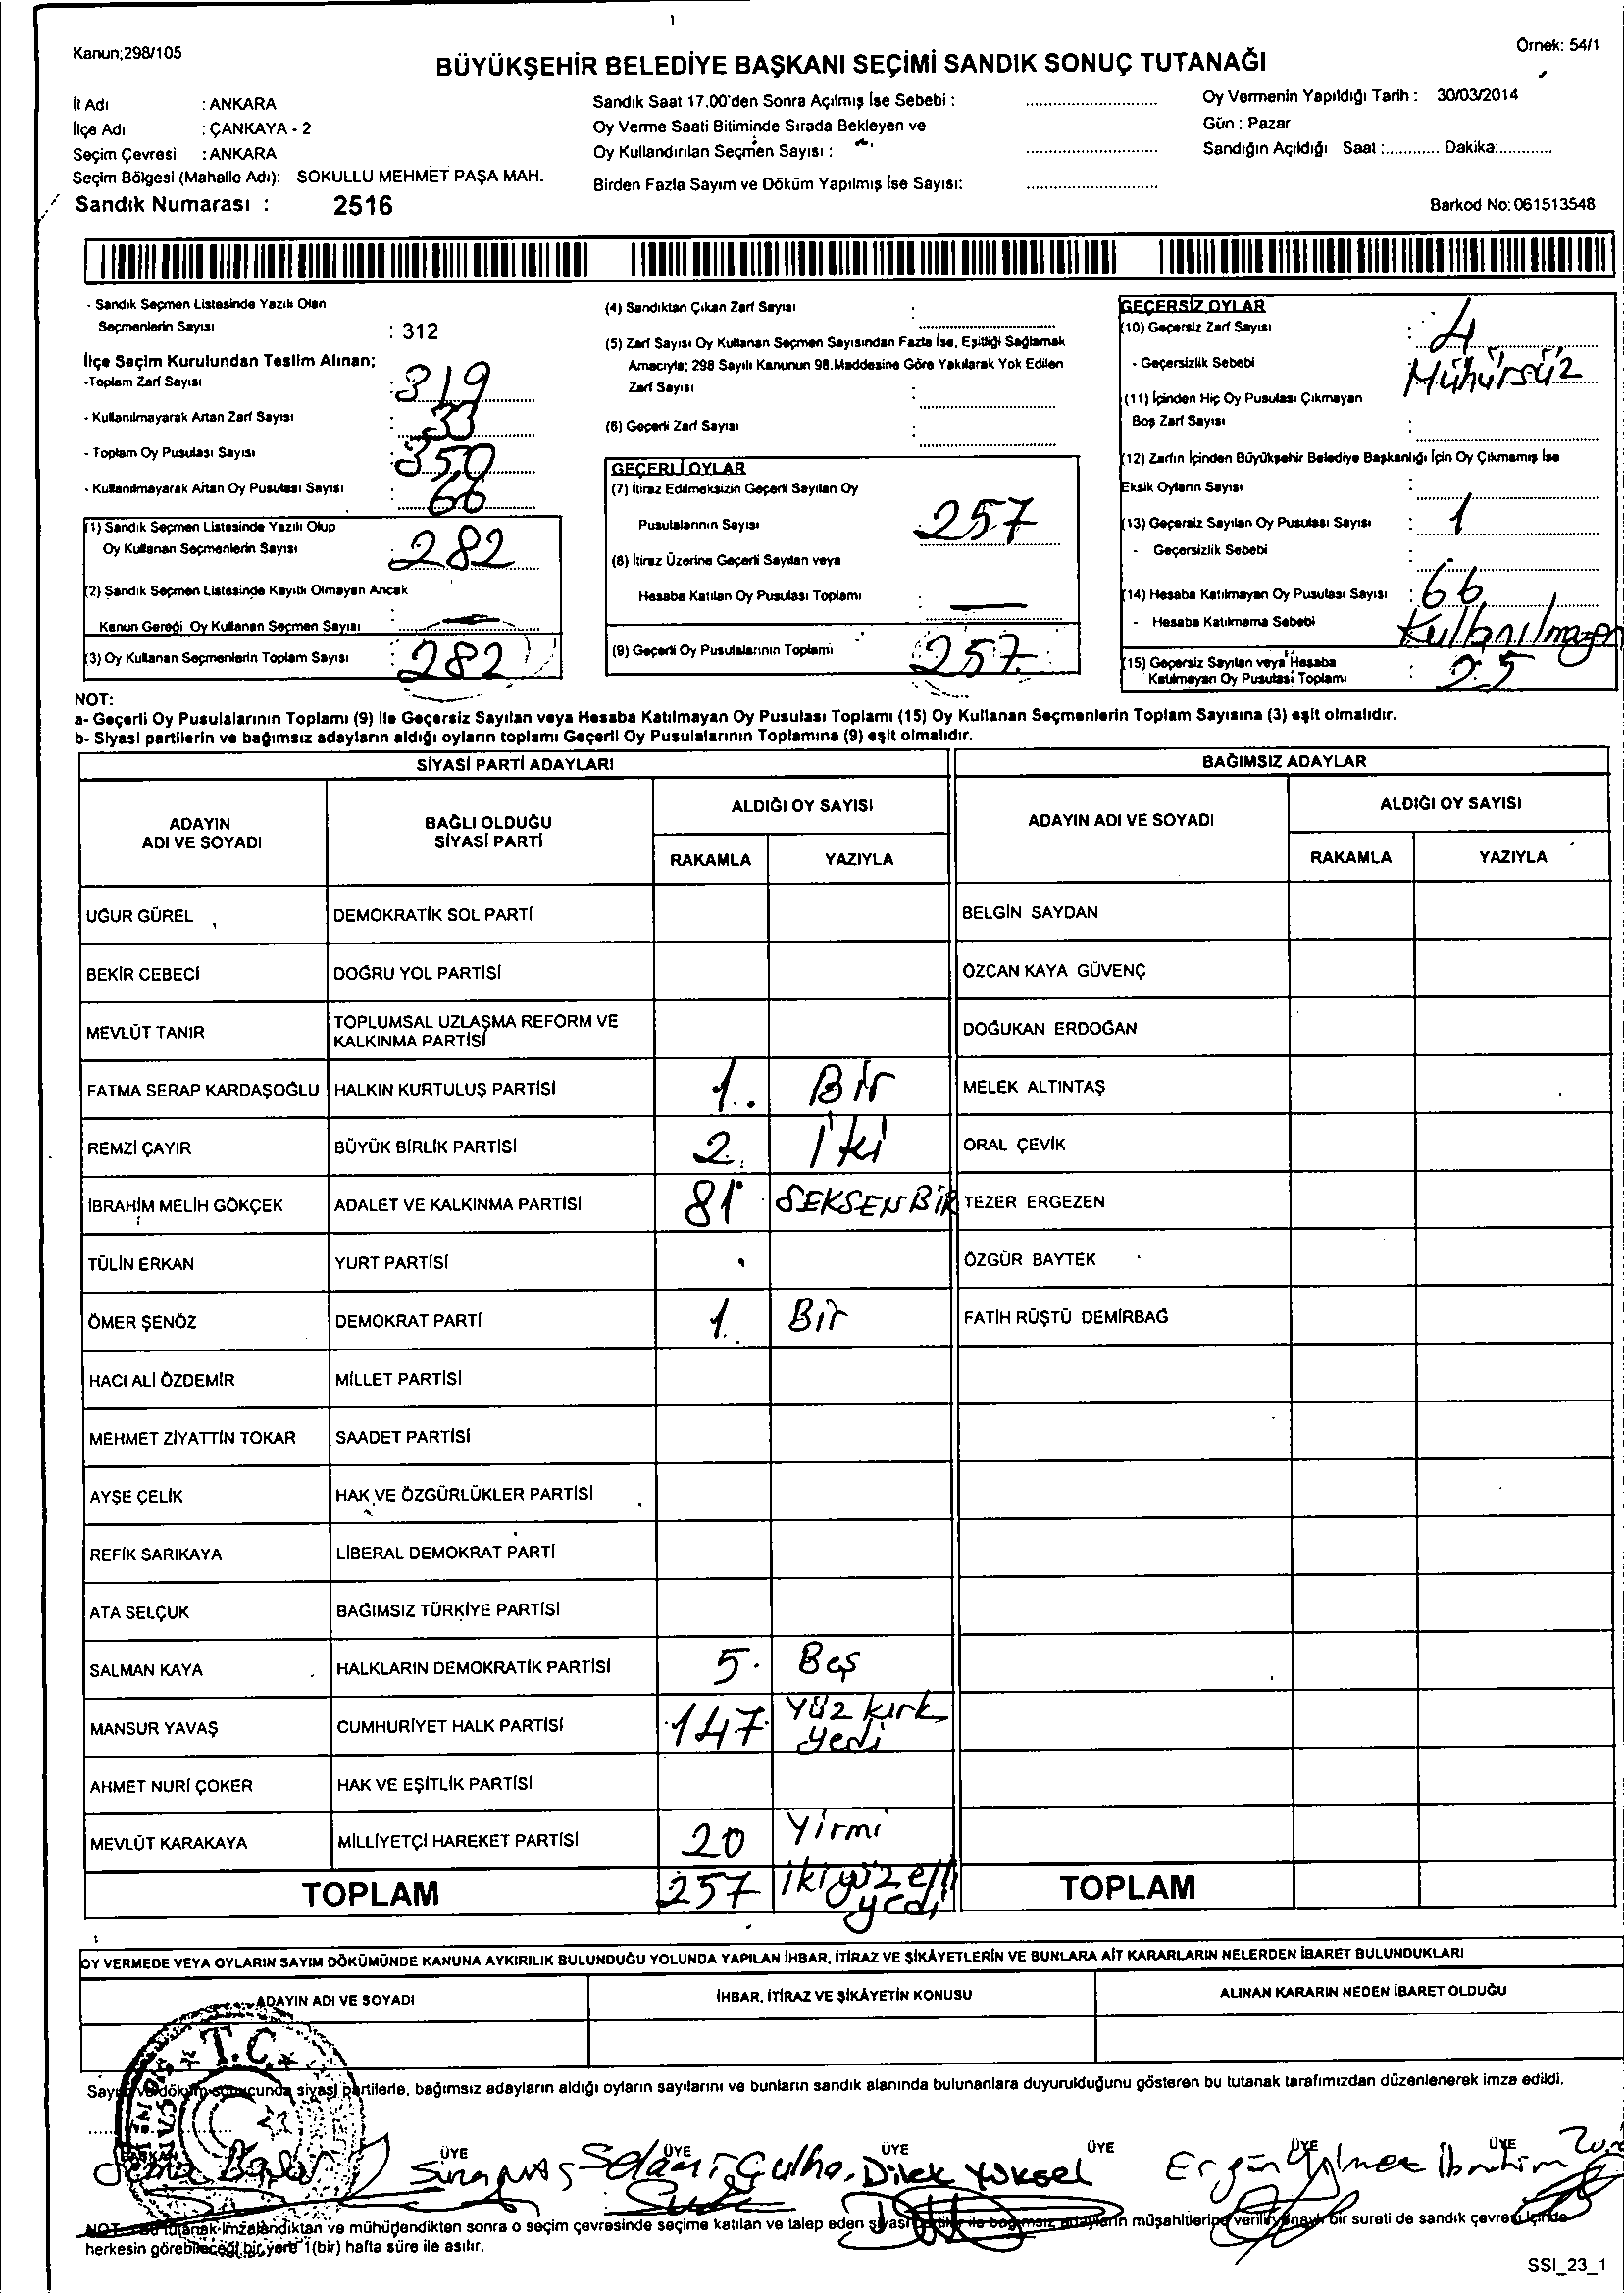 Kanun;298/105
Örnek: 54/1
BÜYÜKŞEHİR BELEDİYE BAŞKANI SEÇİMİ SANDIK SONUÇ TUTANAĞI
İl Adı : ANKARA
İlçe Adı : ÇANKAYA - 2
Seçim Çevresi : ANKARA
Seçim Bölgesi (Mahalle Adı): SOKULLU MEHMET PAŞA MAH.
Sandık Numarası : 2516
Sandık Saat 17.00'den Sonra Açılmış İse Sebebi :
Oy Verme Saati Bitiminde Sırada Bekleyen ve
Oy Kullandırılan Seçmen Sayısı :
Birden Fazla Sayım ve Döküm Yapılmış İse Sayısı:
Oy Vermenin Yapıldığı Tarih : 30/03/2014
Gün : Pazar
Sandığın Açıldığı Saat :............ Dakika:............
Barkod No: 061513548
- Sandık Seçmen Listesinde Yazılı Olan
Seçmenlerin Sayısı : 312
İlçe Seçim Kurulundan Teslim Alınan;
-Toplam Zarf Sayısı : 319
- Kullanılmayarak Artan Zarf Sayısı : 33
- Toplam Oy Pusulası Sayısı : 350
- Kullanılmayarak Artan Oy Pusulası Sayısı : 66
(1) Sandık Seçmen Listesinde Yazılı Olup
Oy Kullanan Seçmenlerin Sayısı : 282
(2) Sandık Seçmen Listesinde Kayıtlı Olmayan Ancak
Kanun Gereği Oy Kullanan Seçmen Sayısı : —
(3) Oy Kullanan Seçmenlerin Toplam Sayısı : 282
(4) Sandıktan Çıkan Zarf Sayısı :
(5) Zarf Sayısı Oy Kullanan Seçmen Sayısından Fazla İse, Eşitliği Sağlamak
Amacıyla; 298 Sayılı Kanunun 98.Maddesine Göre Yakılarak Yok Edilen
Zarf Sayısı :
(6) Geçerli Zarf Sayısı :
GEÇERLİ OYLAR
(7) İtiraz Edilmeksizin Geçerli Sayılan Oy
Pusulalarının Sayısı : 257
(8) İtiraz Üzerine Geçerli Sayılan veya
Hesaba Katılan Oy Pusulası Toplamı : —
(9) Geçerli Oy Pusulalarının Toplamı : 257
GEÇERSİZ OYLAR
(10) Geçersiz Zarf Sayısı : 4
- Geçersizlik Sebebi Mühürsüz
(11) İçinden Hiç Oy Pusulası Çıkmayan
Boş Zarf Sayısı :
(12) Zarfın İçinden Büyükşehir Belediye Başkanlığı İçin Oy Çıkmamış İse
Eksik Oyların Sayısı :
(13) Geçersiz Sayılan Oy Pusulası Sayısı : 1
- Geçersizlik Sebebi
(14) Hesaba Katılmayan Oy Pusulası Sayısı : 66
- Hesaba Katılmama Sebebi
(15) Geçersiz Sayılan veya Hesaba
Katılmayan Oy Pusulası Toplamı : 25
NOT:
a- Geçerli Oy Pusulalarının Toplamı (9) ile Geçersiz Sayılan veya Hesaba Katılmayan Oy Pusulası Toplamı (15) Oy Kullanan Seçmenlerin Toplam Sayısına (3) eşit olmalıdır.
b- Siyasi partilerin ve bağımsız adayların aldığı oyların toplamı Geçerli Oy Pusulalarının Toplamına (9) eşit olmalıdır.
SİYASİ PARTİ ADAYLARI BAĞIMSIZ ADAYLAR
ADAYIN ADI VE SOYADI BAĞLI OLDUĞU SİYASİ PARTİ ALDIĞI OY SAYISI ADAYIN ADI VE SOYADI ALDIĞI OY SAYISI
RAKAMLA YAZIYLA RAKAMLA YAZIYLA
UĞUR GÜREL DEMOKRATİK SOL PARTİ BELGİN SAYDAN
BEKİR CEBECİ DOĞRU YOL PARTİSİ ÖZCAN KAYA GÜVENÇ
MEVLÜT TANIR TOPLUMSAL UZLAŞMA REFORM VE KALKINMA PARTİSİ DOĞUKAN ERDOĞAN
FATMA SERAP KARDAŞOĞLU HALKIN KURTULUŞ PARTİSİ 1 Bir MELEK ALTINTAŞ
REMZİ ÇAYIR BÜYÜK BİRLİK PARTİSİ 2 İki ORAL ÇEVİK
İBRAHİM MELİH GÖKÇEK ADALET VE KALKINMA PARTİSİ 81 SEKSENBİR TEZER ERGEZEN
TÜLİN ERKAN YURT PARTİSİ ÖZGÜR BAYTEK
ÖMER ŞENÖZ DEMOKRAT PARTİ 1 Bir FATİH RÜŞTÜ DEMİRBAĞ
HACI ALİ ÖZDEMİR MİLLET PARTİSİ
MEHMET ZİYATTİN TOKAR SAADET PARTİSİ
AYŞE ÇELİK HAK VE ÖZGÜRLÜKLER PARTİSİ
REFİK SARIKAYA LİBERAL DEMOKRAT PARTİ
ATA SELÇUK BAĞIMSIZ TÜRKİYE PARTİSİ
SALMAN KAYA HALKLARIN DEMOKRATİK PARTİSİ 5 Beş
MANSUR YAVAŞ CUMHURİYET HALK PARTİSİ 147 Yüz kırk yedi
AHMET NURİ ÇOKER HAK VE EŞİTLİK PARTİSİ
MEVLÜT KARAKAYA MİLLİYETÇİ HAREKET PARTİSİ 20 Yirmi
TOPLAM 257 ikiyüzelli yedi TOPLAM
OY VERMEDE VEYA OYLARIN SAYIM DÖKÜMÜNDE KANUNA AYKIRILIK BULUNDUĞU YOLUNDA YAPILAN İHBAR, İTİRAZ VE ŞİKÂYETLERİN VE BUNLARA AİT KARARLARIN NELERDEN İBARET BULUNDUKLARI
ADAYIN ADI VE SOYADI İHBAR, İTİRAZ VE ŞİKÂYETİN KONUSU ALINAN KARARIN NEDEN İBARET OLDUĞU
T.C.
siyasi partilerle, bağımsız adayların aldığı oyların sayılarını ve bunların sandık alanında bulunanlara duyurulduğunu gösteren bu tutanak tarafımızdan düzenlenerek imza edildi.
ÜYE ÜYE ÜYE ÜYE ÜYE ÜYE
Dilek Yüksel
NOT: Bu tutanak imzalandıktan ve mühürlendikten sonra o seçim çevresinde seçime katılan ve talep eden siyasi partiler ile bağımsız adayların müşahitlerine verilir, onaylı bir sureti de sandık çevresi içinde
herkesin görebileceği bir yere 1(bir) hafta süre ile asılır.
SSI_23_1